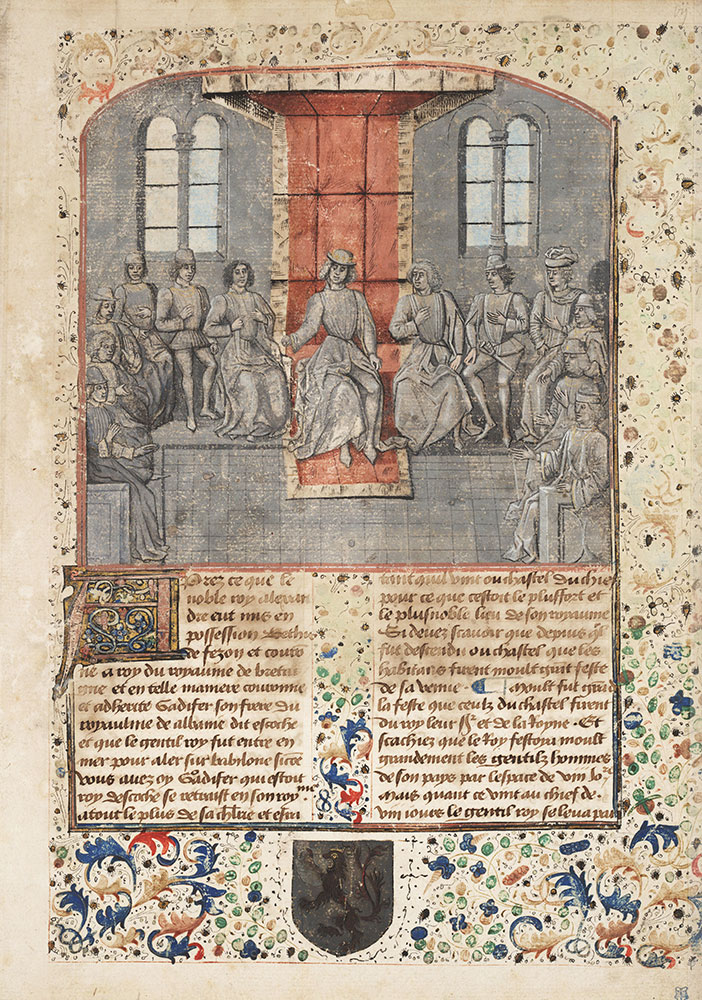 Aprez ce que le
noble roy alexan
dre eut mis en
possession Bethis
de fezon et couro
ne a roy du royaume de bretai
gne et en telle maniere couronne
et adherite Gadifer son frere du
royaulme de albanie dit escoche
et que le gentil roy fut entre en
mer pour aler sur babilone sicōe
vous avez oy Gadifer qui estoit
roy descoche se retraist en son roy
atout le plus de sa chlrie et
tant quil vint ou chastel du chief
pour ce que cestoit le plus fort et
le plus noble lieu de son royaume
Si devez scavoir que depuis ql
fut descendu ou chastel que les
habitans firent moult grāt feste
de sa venue moult fut grād
la feste que ceulz du chastel firent
du roy leur sr et de la Royne Et
scachiez que le Roy festoya moult
grandement les gentilz hommes
de son pays par lespace de viii
Mais quant ce vint au chief de
viii iours le gentil roy se leva par